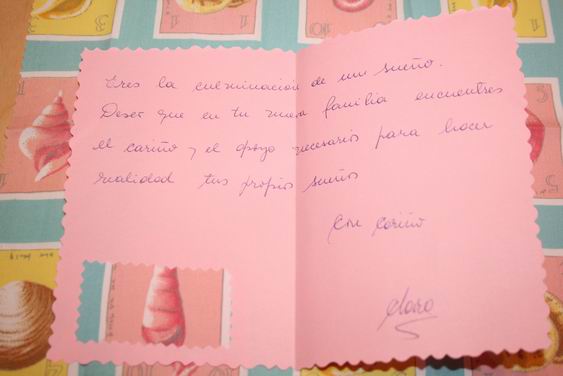 Eres la culminación de un sueño.
Deseo que en tu nueva familia encuentres
el cariño y el apoyo necesarios para hacer
realidad tus propios sueños
Con cariño
Clara